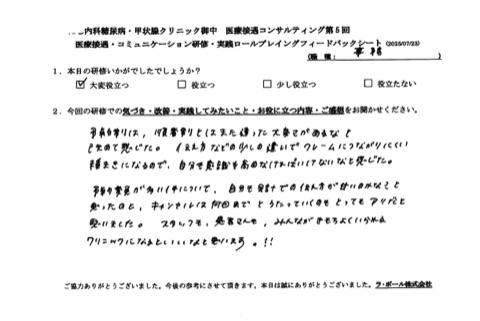 内科糖尿病・甲状腺クリニック御中　医療接遇コンサルティング第5回
医療接遇・コミュニケーション研修・実践ロールプレイングフィードバックシート（2025/07/23）
（職種： 事務 ）
1．本日の研修いかがでしたでしょうか？
☑ 大変役立つ　□ 役立つ　□ 少し役立つ　□ 役立たない
2．今回の研修での気づき・改善・実践してみたいこと・お役に立つ内容・ご感想をお聞かせください。
は、 とはまた違った大変さがあるなと
改めて感じた。 伝え方などの少しの違いでクレームにつながりにくい
になるので、自分も意識を高めなければいけないなと感じた。
が多い について、自分も での伝え方が甘いのかなと
思ったのと、キャンセルは何回まで とうたっていくのもとってもアリだと
思いました。 スタッフも、患者さんも、みんなが気もちよくいられる
クリニックになるといいなと思います。!!
ご協力ありがとうございました。今後の参考にさせて頂きます。本日は誠にありがとうございました。ラ・ポール株式会社